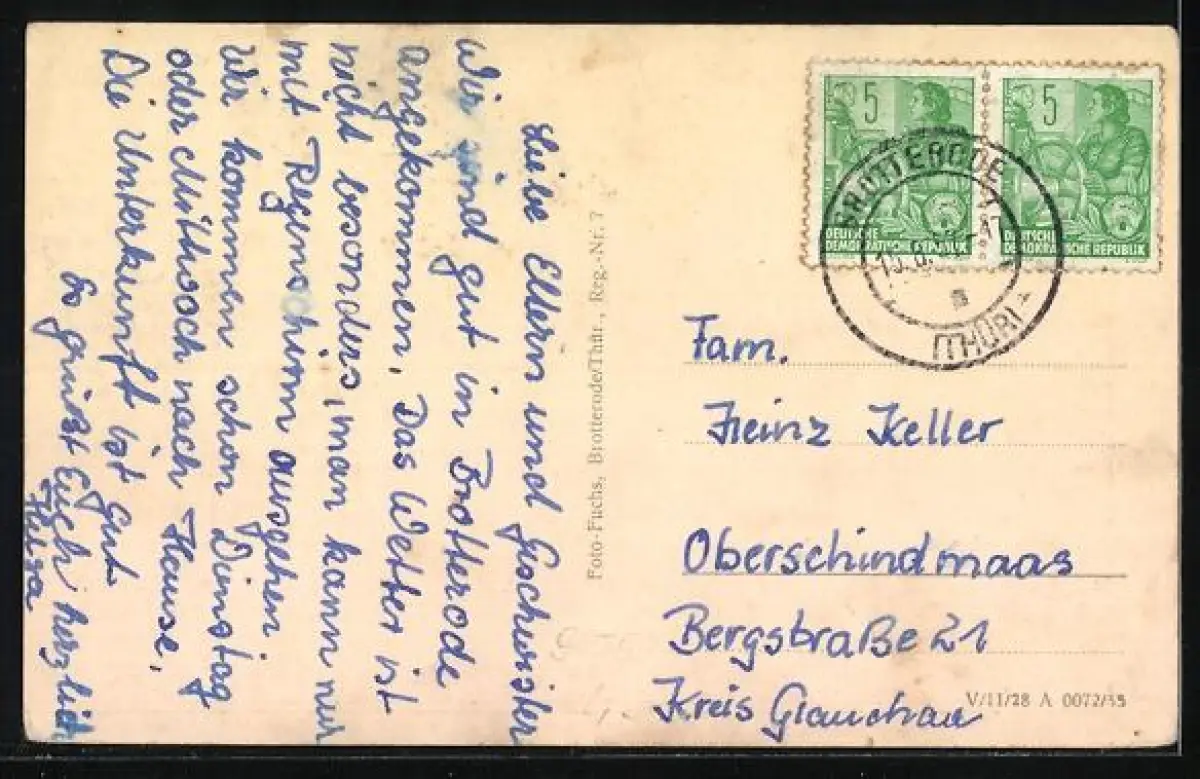 Liebe Eltern und Geschwister
Wir sind gut in Brotterode
angekommen. Das Wetter ist
nicht besonders, man kann nur
mit Regenschirm ausgehen.
Wir kommen schon Dinstag
oder Mittwoch nach Hause.
Die Unterkunft ist gut
Es grüßt Euch herzlich
Foto-Fuchs, Brotterode/Thür., Reg.-Nr. 7
5
DEUTSCHE
DEMOKRATISCHE REPUBLIK
5
DEUTSCHE
DEMOKRATISCHE REPUBLIK
BROTTERODE
(THÜR)
a
Fam.
Heinz Keller
Oberschindmaas
Bergstraße 21
Kreis Glauchau
V/11/28 A 0072/55